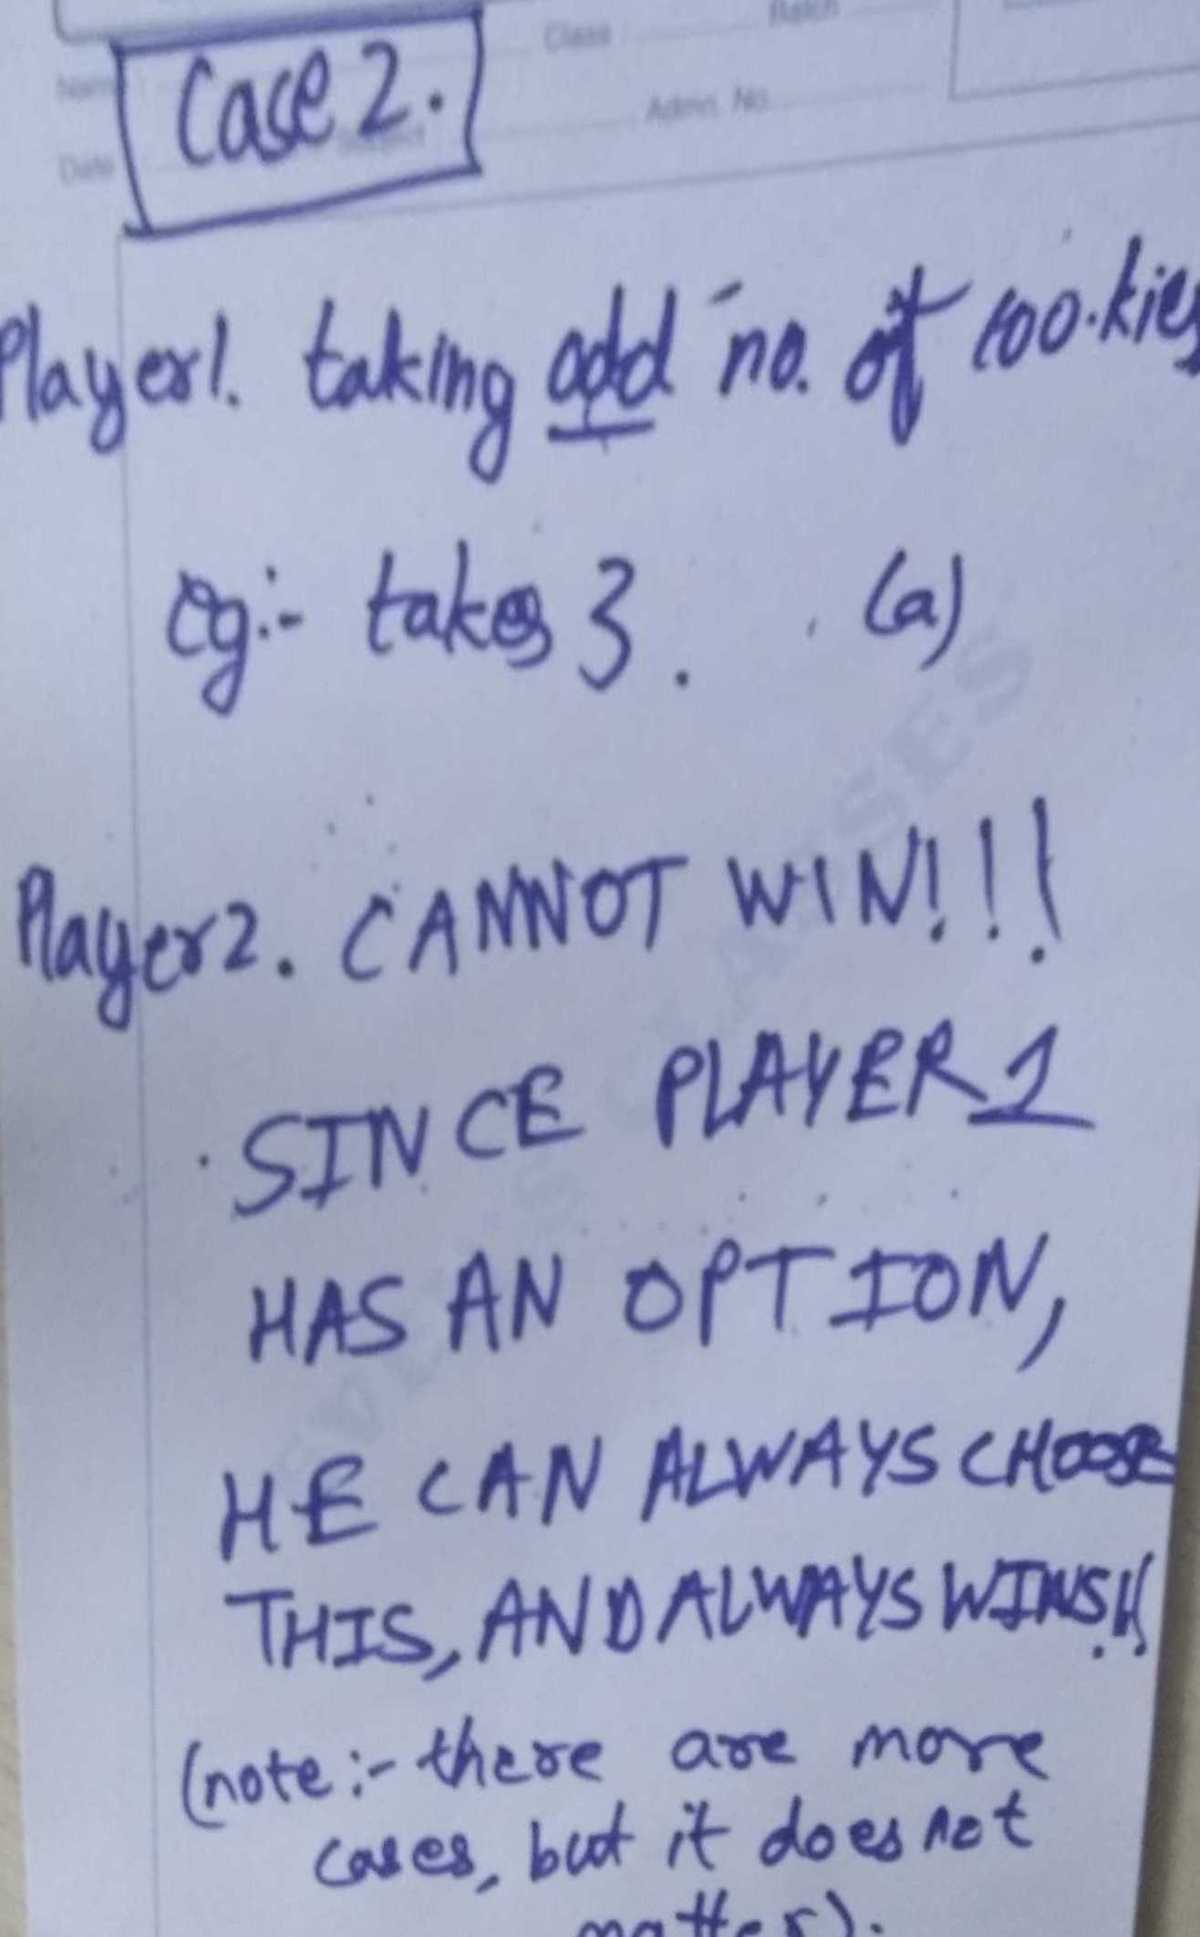 Class Batch
Name
Case 2.
Admn. No.
Date
Player1. taking odd no. of cookies
eg:- takes 3. (a)
Player2. CANNOT WIN!!!
SINCE PLAYER 1
HAS AN OPTION,
HE CAN ALWAYS CHOOSE
THIS, AND ALWAYS WINS!!
(note:- there are more
cases, but it does not
matter).